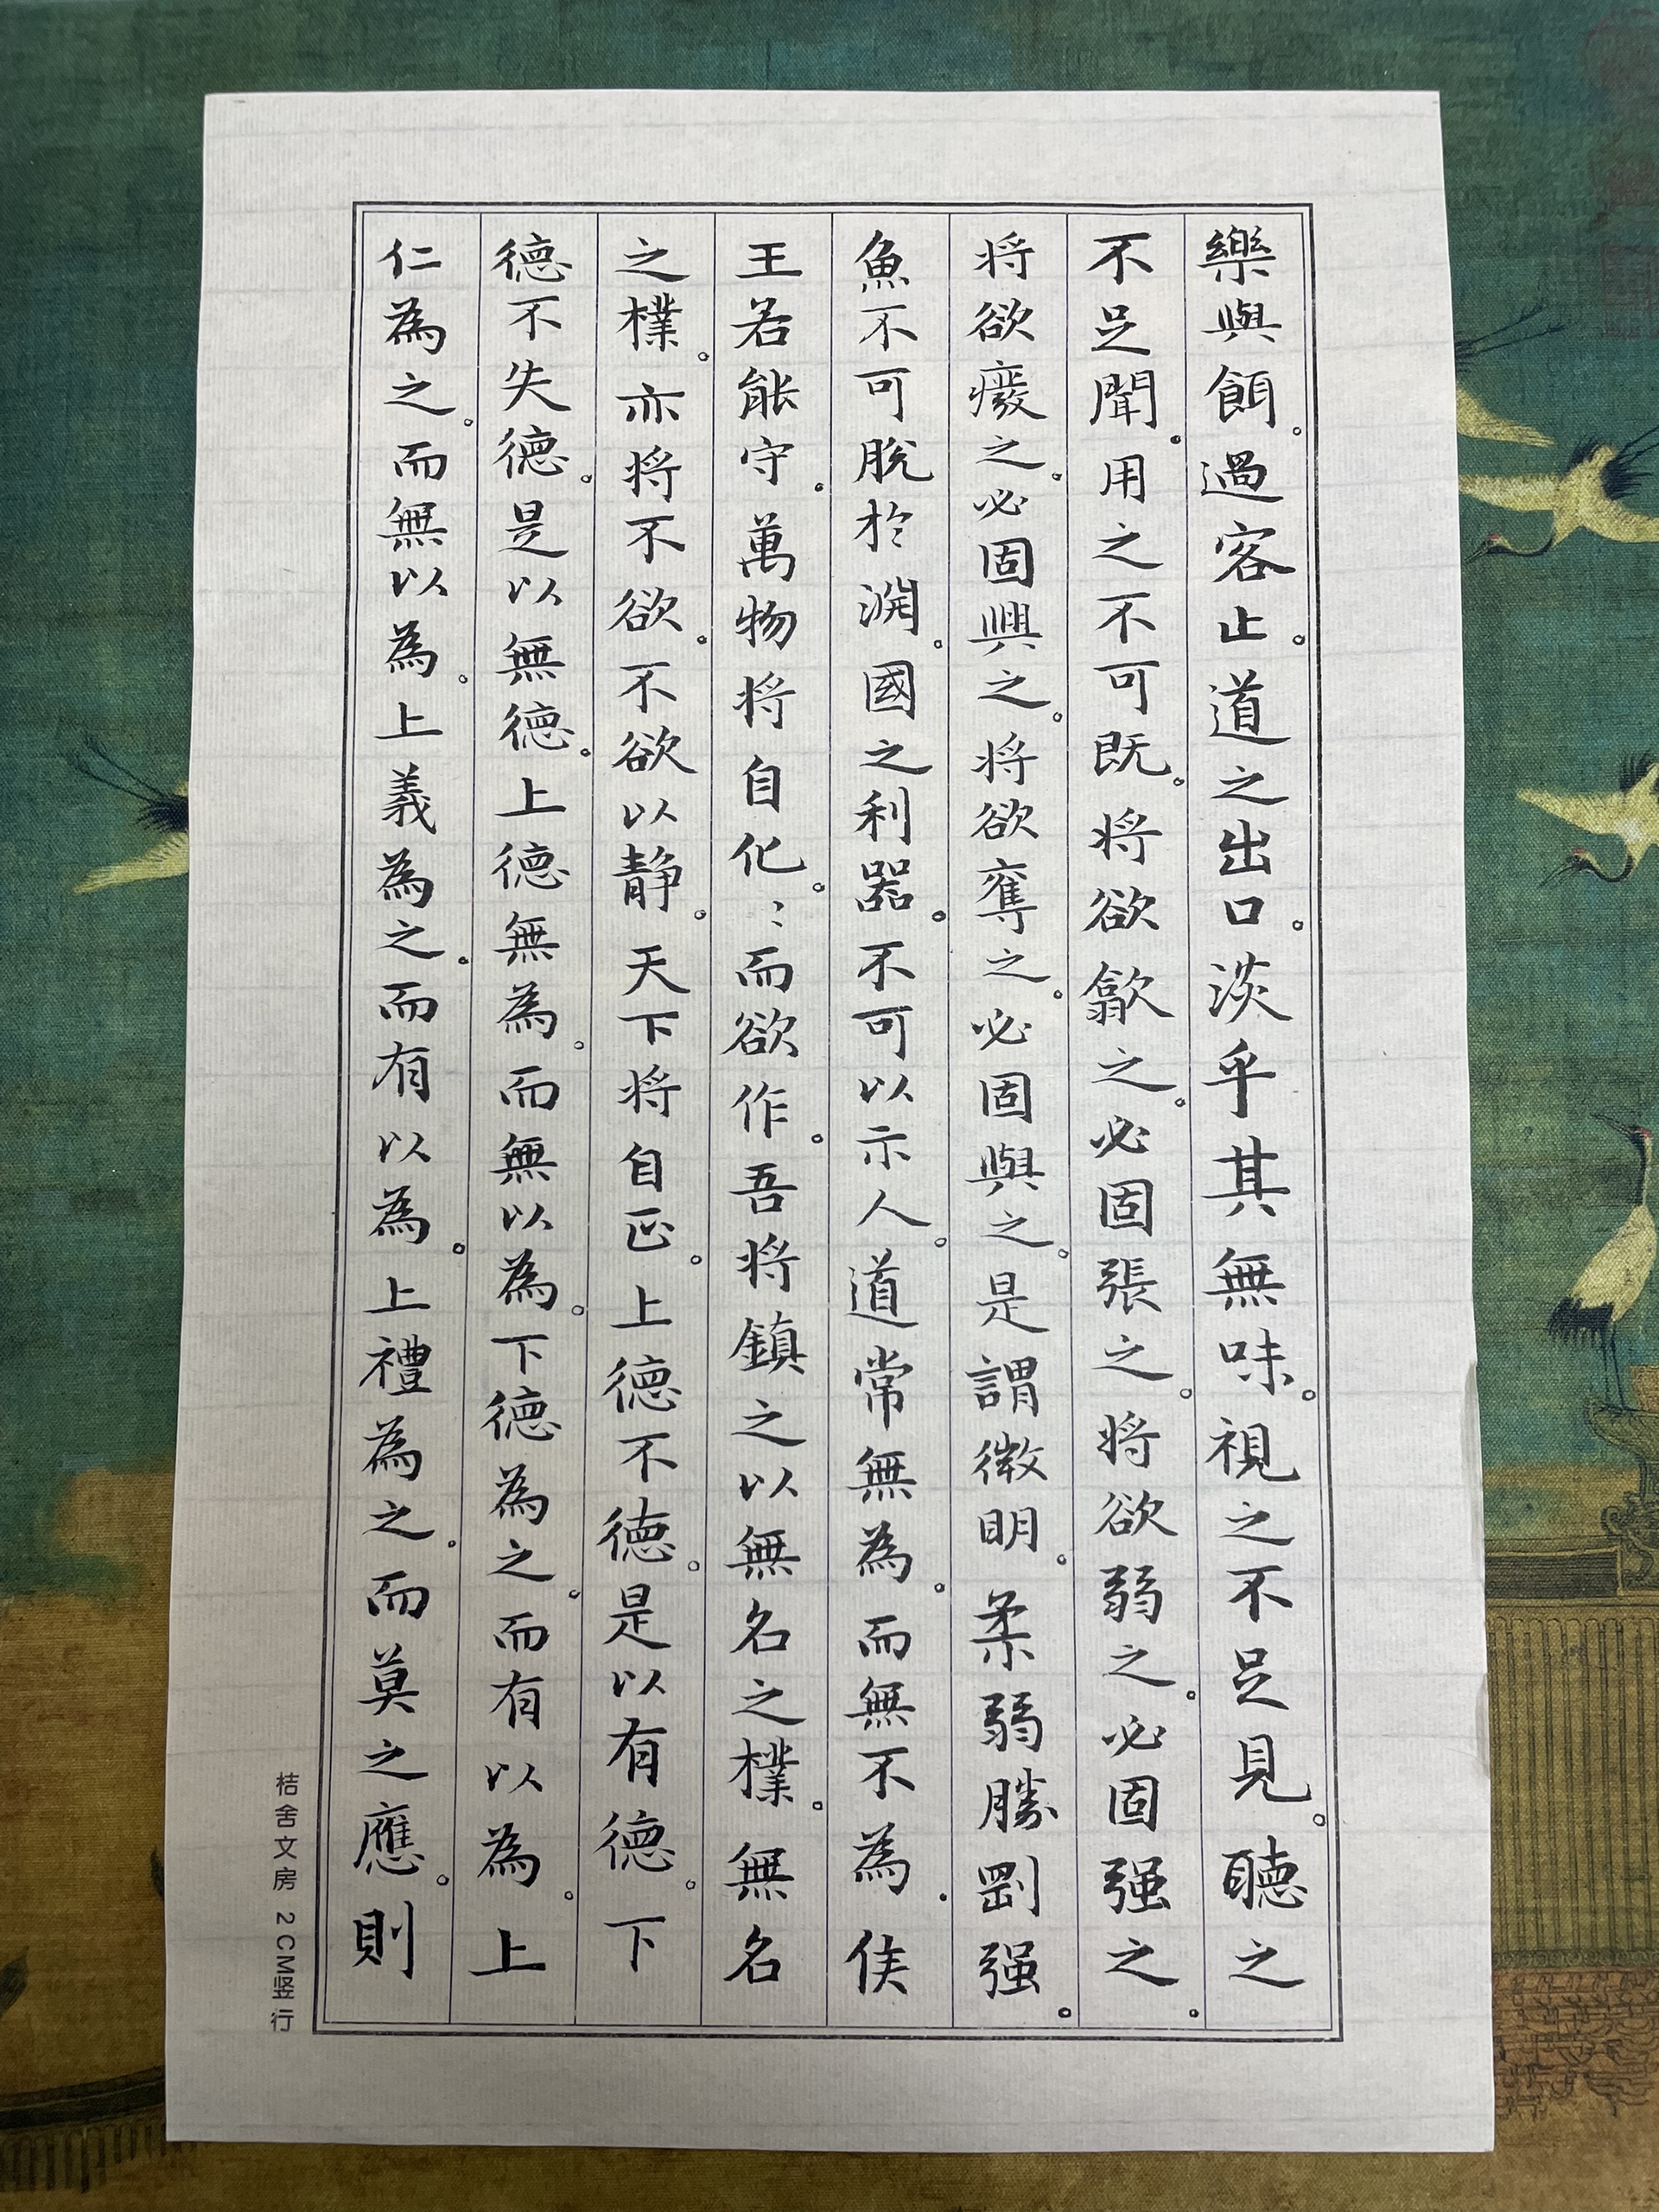 樂與餌。過客止。道之出口。淡乎其無味。視之不足見。聽之
不足聞。用之不可既。將欲歙之。必固張之。將欲弱之。必固强之。
將欲癈之。必固興之。將欲奪之。必固與之。是謂微明。柔弱勝剛强。
魚不可脫於淵。國之利器。不可以示人。道常無為。而無不為。侯
王若能守。萬物將自化。〻而欲作。吾將鎮之以無名之樸。無名
之樸。亦將不欲。不欲以静。天下將自正。上德不德。是以有德。下
德不失德。是以無德。上德無為。而無以為。下德為之。而有以為。上
仁為之。而無以為。上義為之。而有以為。上禮為之。而莫之應。則
桔舍文房 2CM竖行